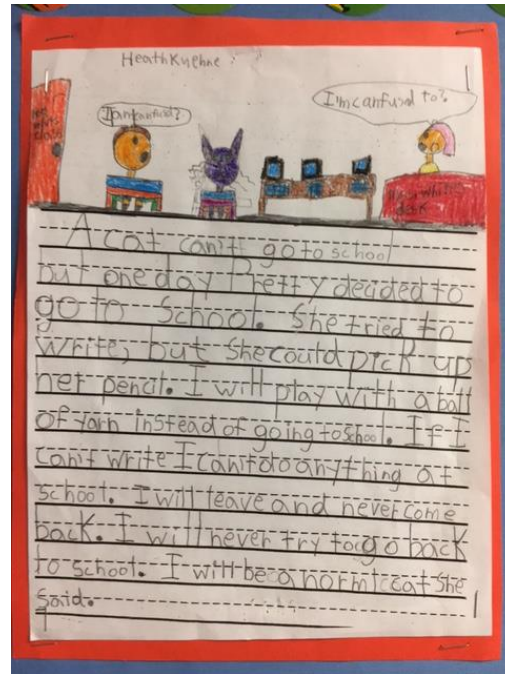 Heath Kuehne
I'm canfused to?
I am canfusd?
A cat can't go to school
but one day Pretty decided to
go to school. She tried to
write, but she could pick up
her pencil. I will play with a ball
of yarn instead of going to school. If I
can't write I can't do anything at
school. I will leave and never come
back. I will never try to go back
to school. I will be a norml cat she
said.